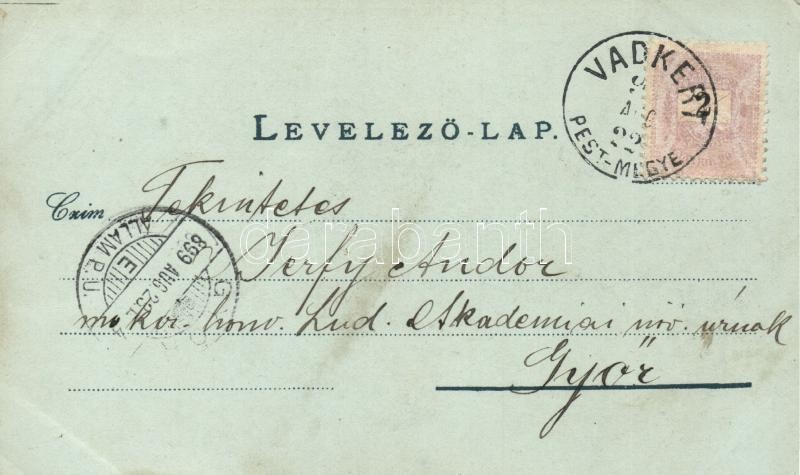 VADKERT
AUG
22
PEST-MEGYE
2
LEVELEZŐ-LAP.
Czim
Tekintetes
Jerfy Andor
m. kir. honv. Lud. Akademiai növ. úrnak
Győr
ÁLLAM P.U.
E
899 AUG. 23
darabanth